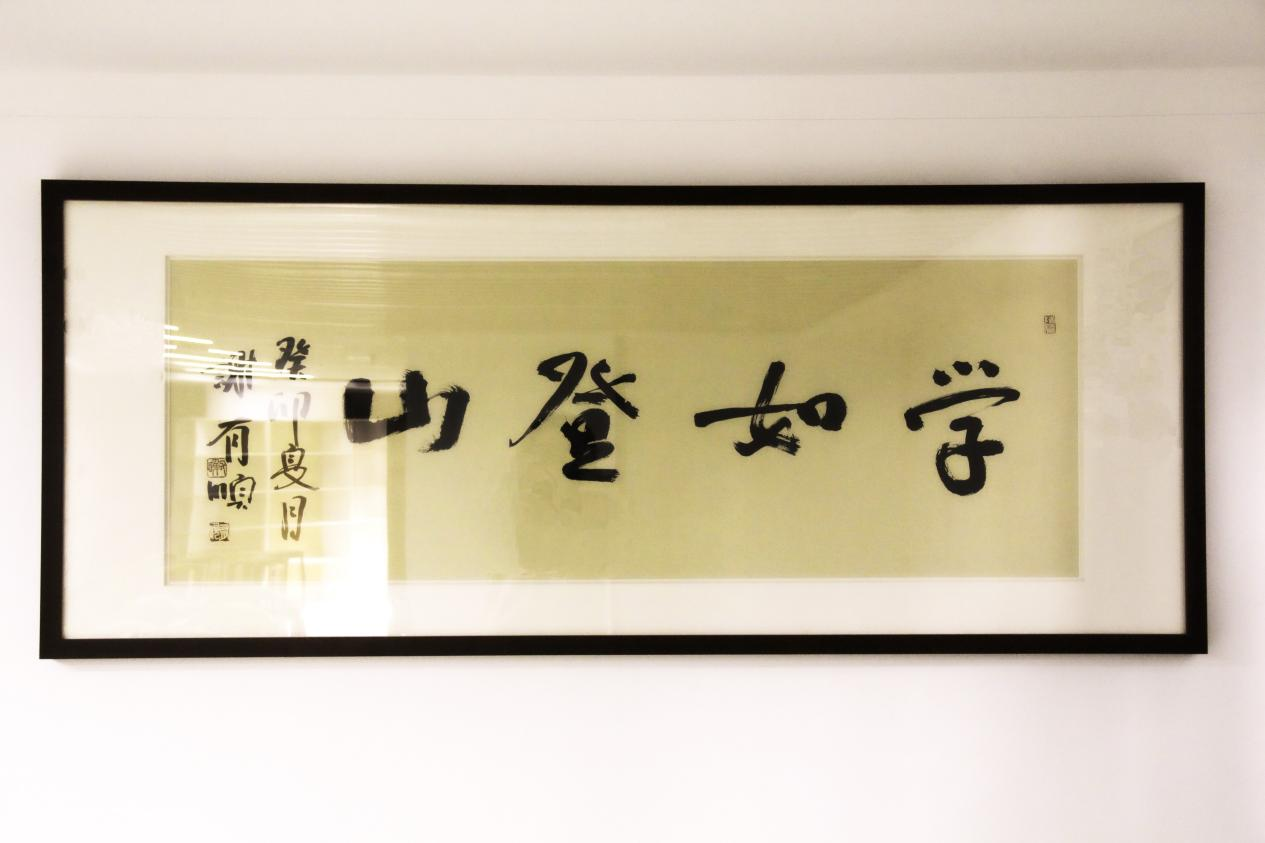 学如登山
癸卯夏月
谢有顺